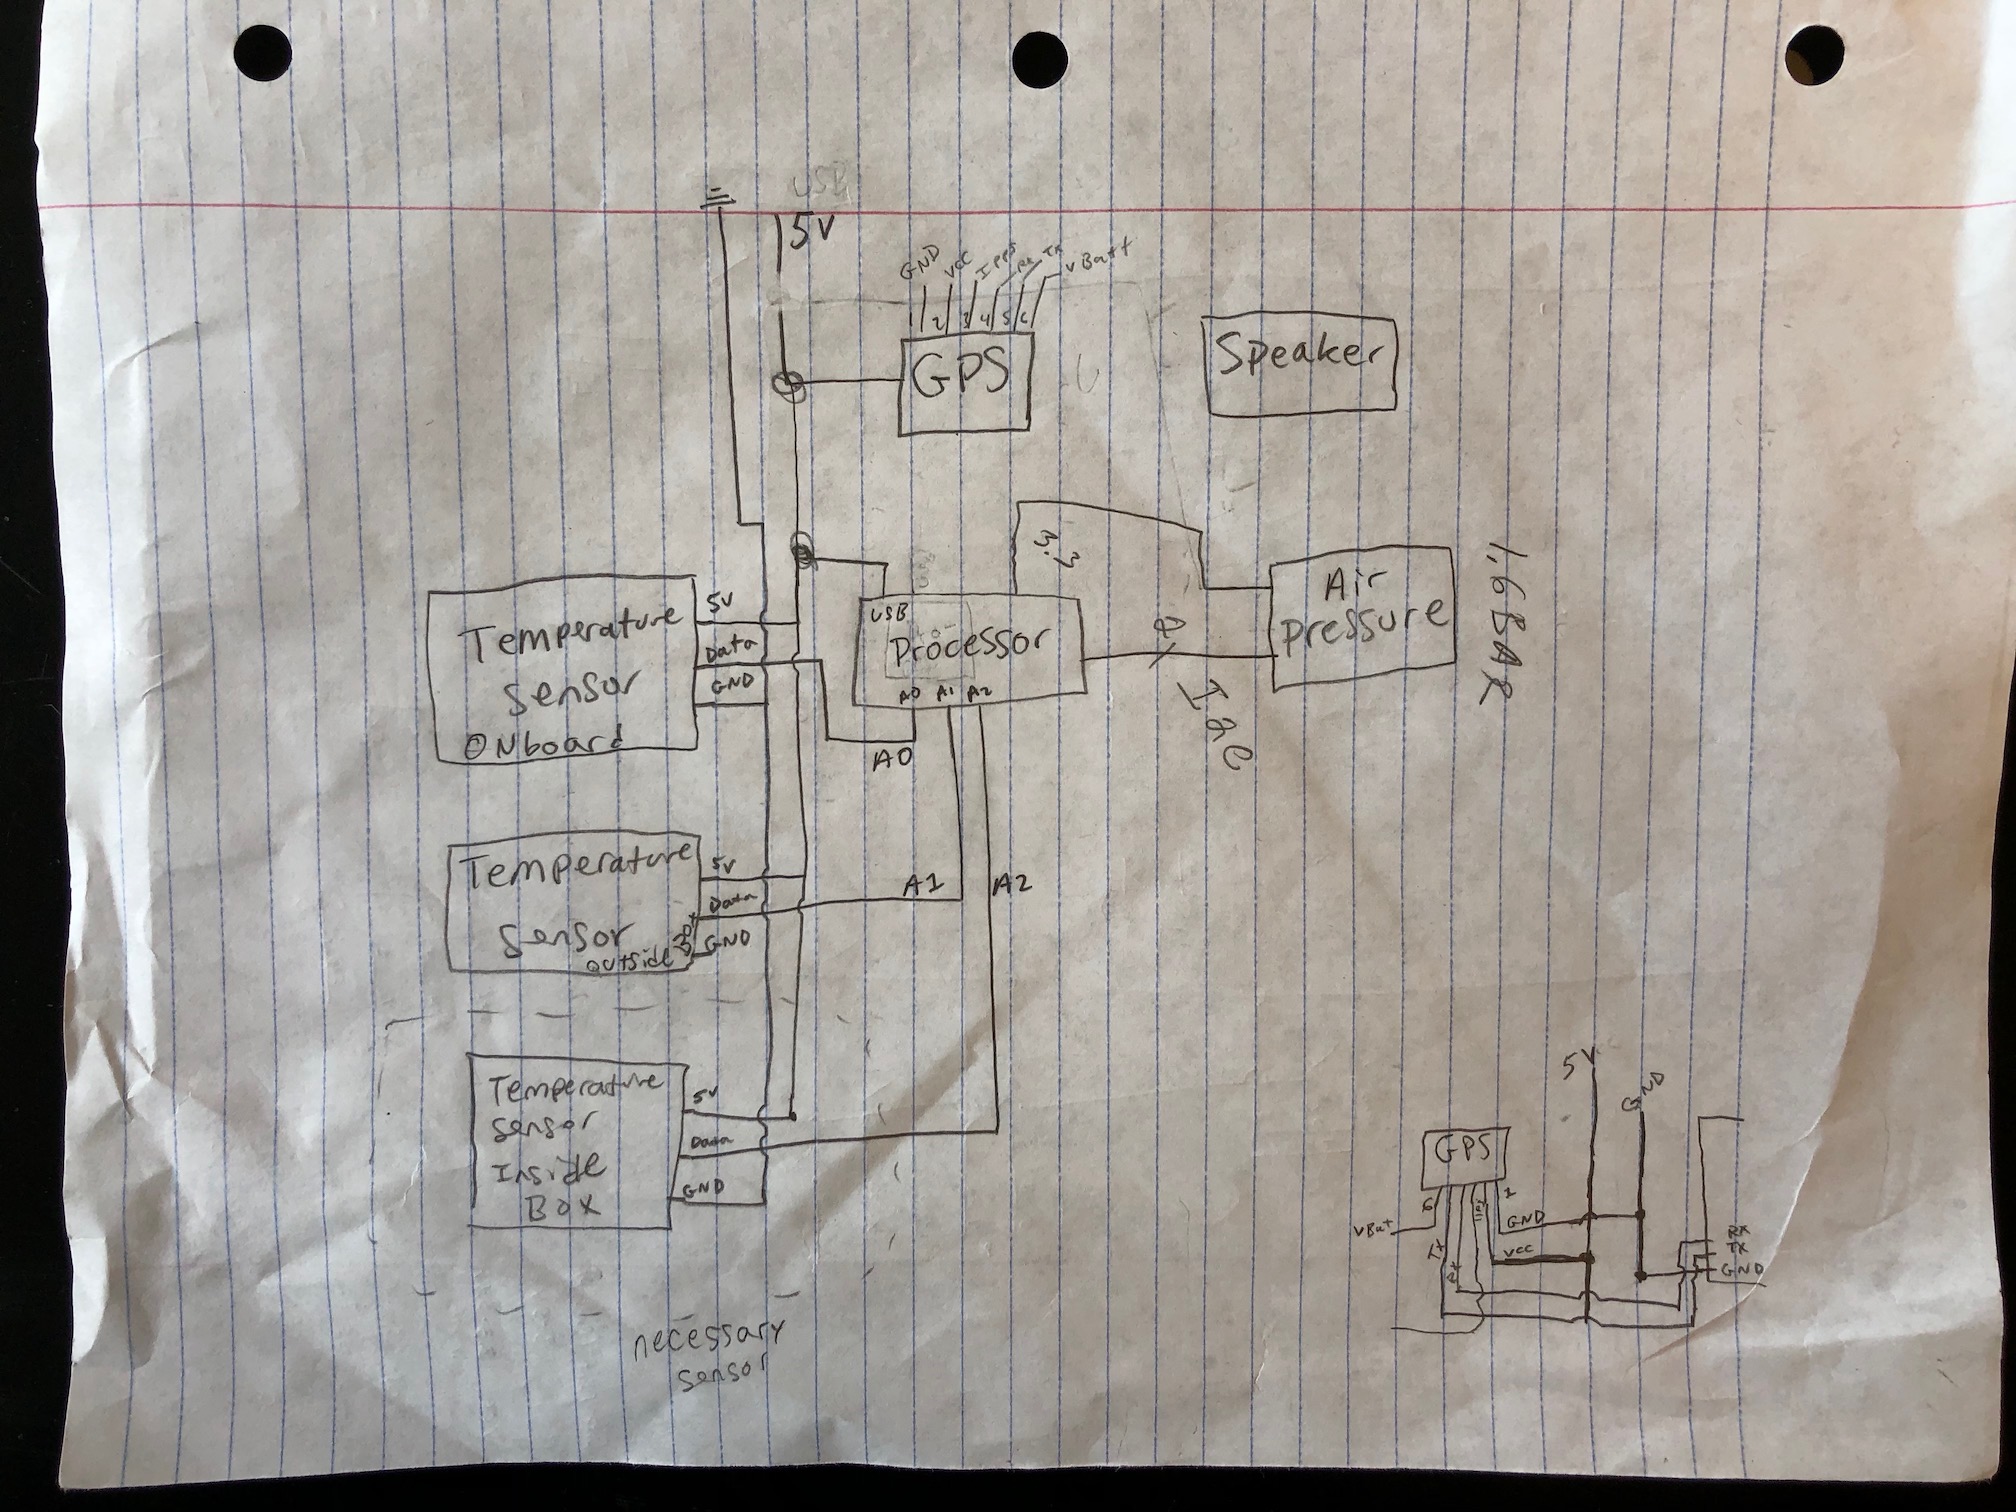 USB
5V
GND
VCC
1PPS
RX
TX
VBatt
2 3 4 5 6
GPS
Speaker
3.3
USB
Processor
A0 A1 A2
Air
Pressure
1.6BAR
2
I2C
Temperature
Sensor
ONboard
5V
Data
GND
A0
Temperature
Sensor
outside Box
5V
Data
GND
A1
A2
Temperature
Sensor
Inside
Box
5V
Data
GND
necessary
sensor
5V
GND
GPS
6
1
VBat
TX
RX
GND
VCC
RX
TX
GND